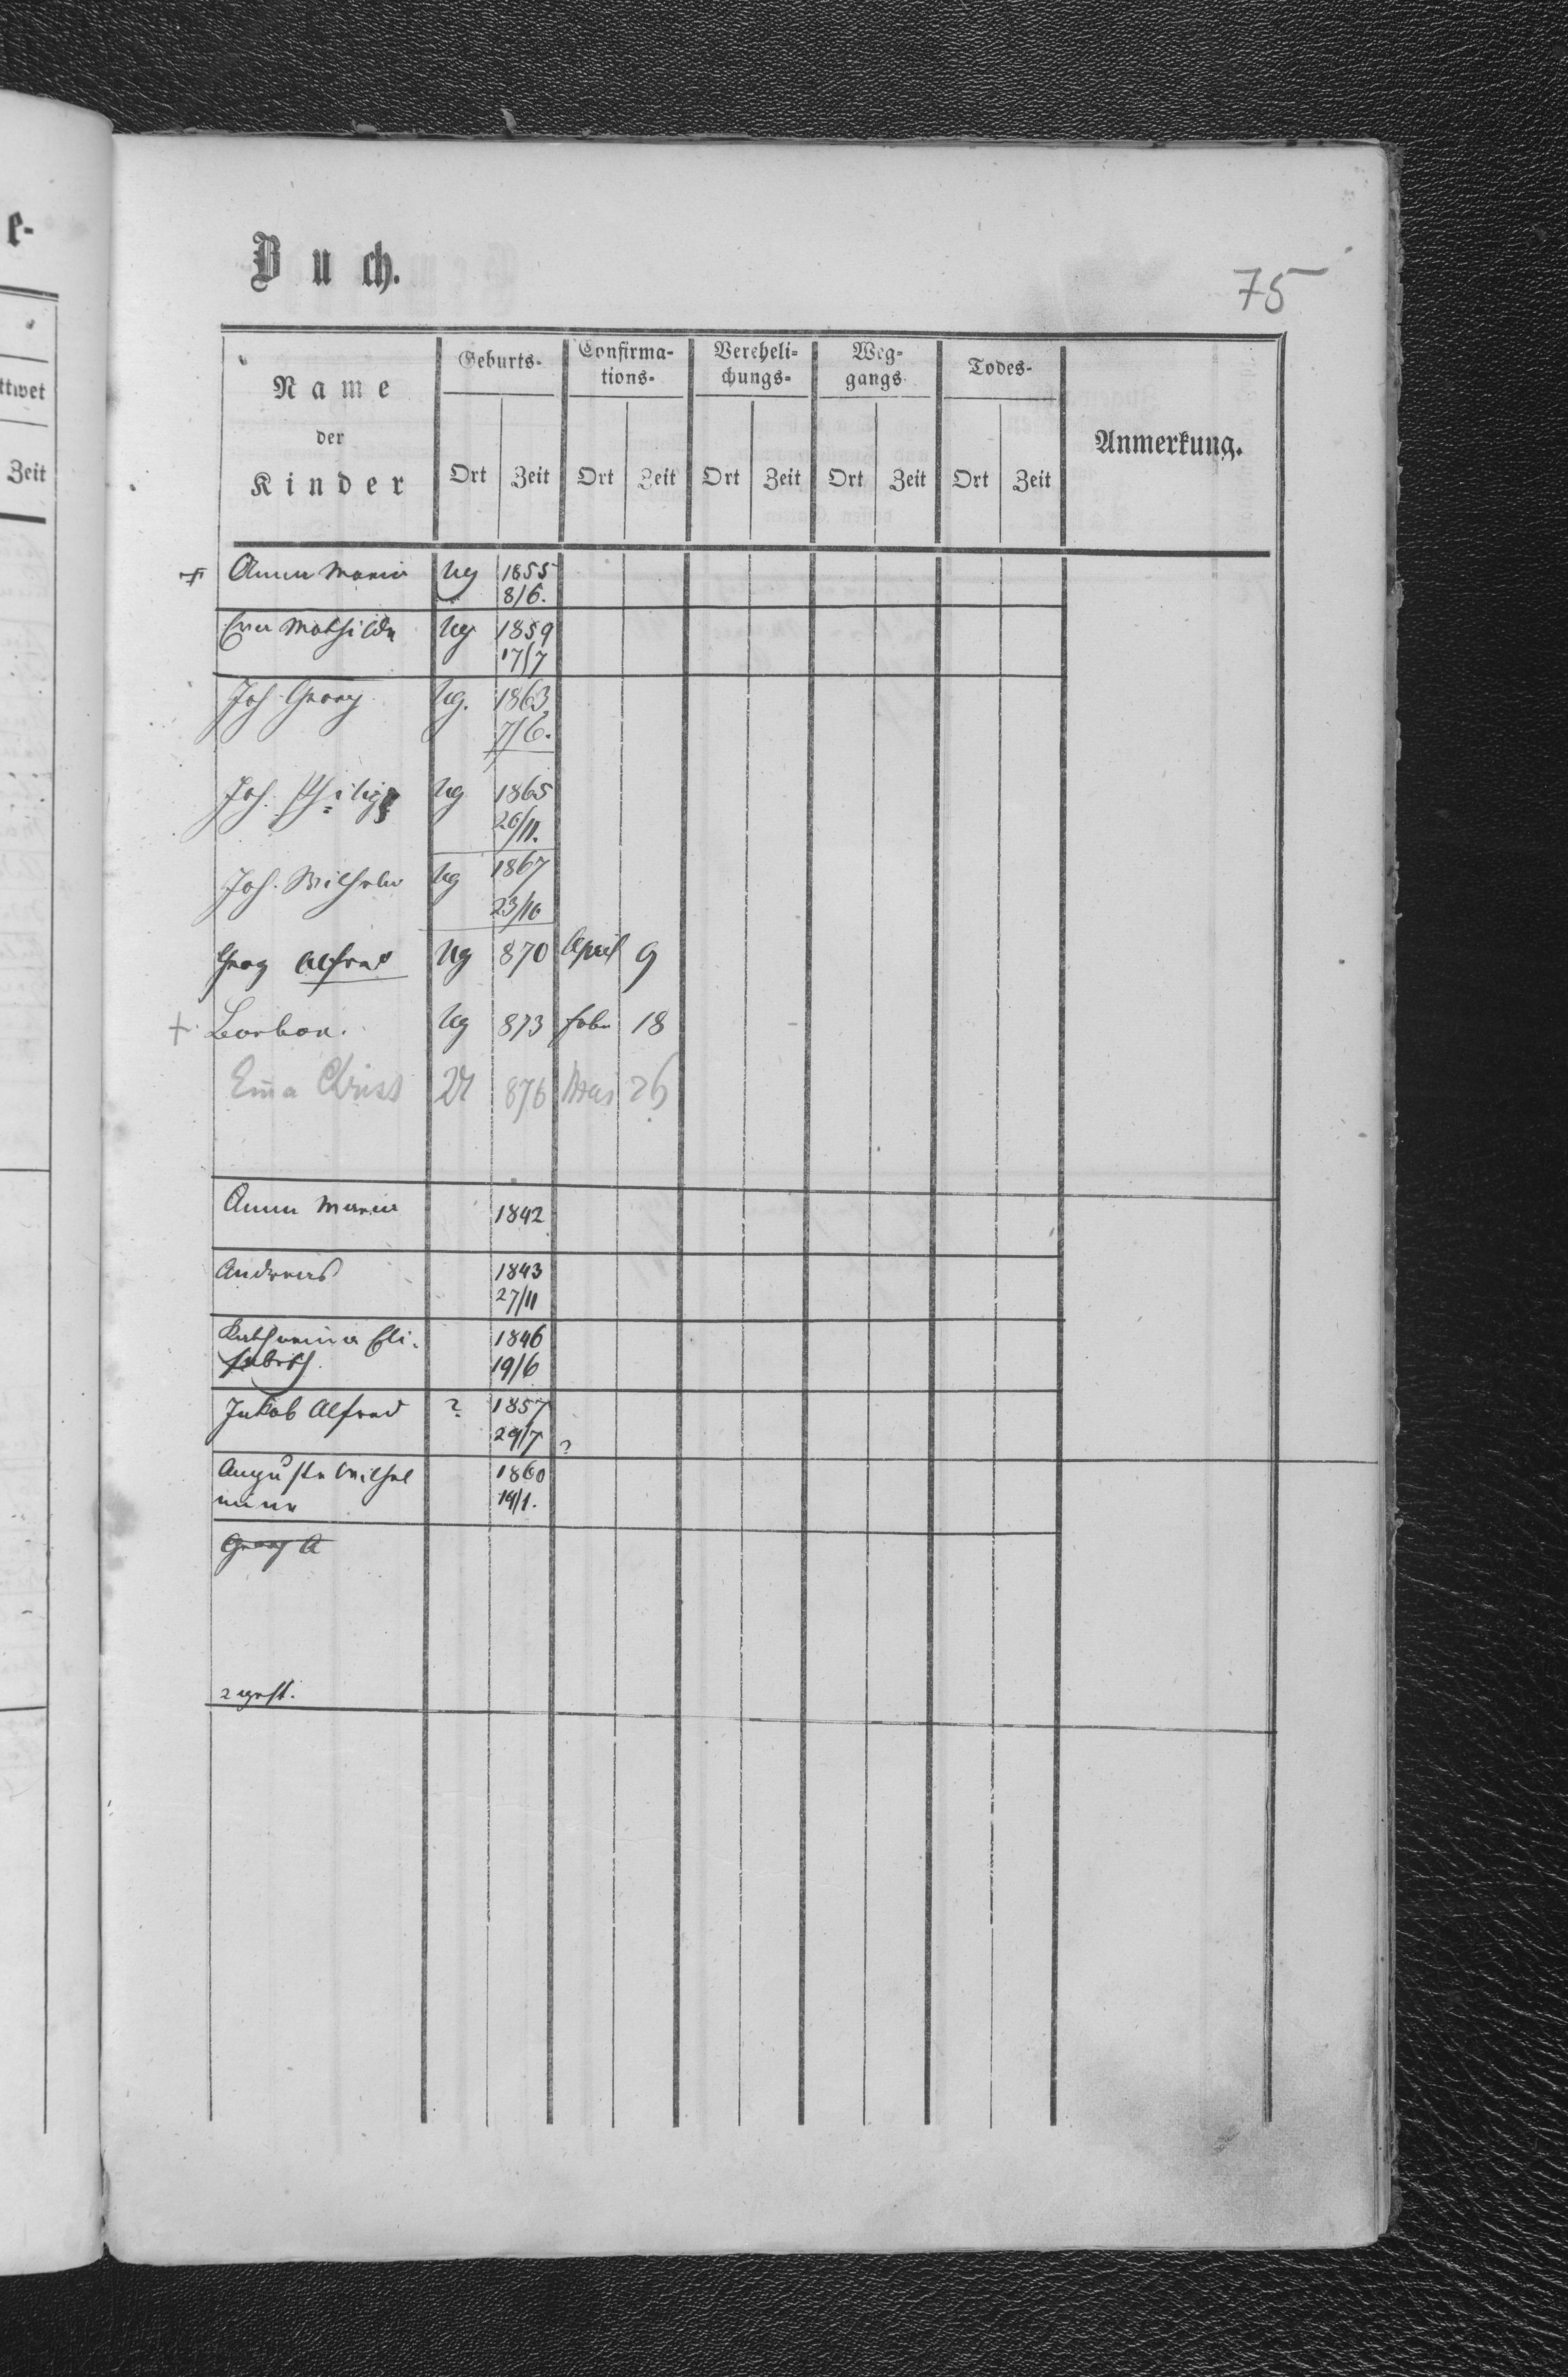 e-
ttwet
Zeit
Buch.
75
Name
der
Kinder
Geburts-
Confirma-
tions-
Vereheli-
chungs-
Weg-
gangs
Todes-
Anmerkung.
Ort Zeit Ort Zeit Ort Zeit Ort Zeit Ort Zeit
+ Anna Maria Ug 1855
8/6.
Eva Mathilde Ug 1859
17/7
Joh. Georg Ug. 1863.
7/6.
Joh. Philipp Ug 1865
26/11.
Joh. Wilhelm Ug 1867
23/10
Georg Alfred Ug 870 April 9
+ Barbara. Ug 873 Febr 18
Em̄a Christ 876 Mai 26
Anna Maria 1842
Andreas 1843
27/11
Katharina Eli-
sabeth 1846
19/6
Jakob Alfred ? 1857
29/7 ?
Auguste Wilhel
mine 1860
19/1.
Georg A
2 gest.